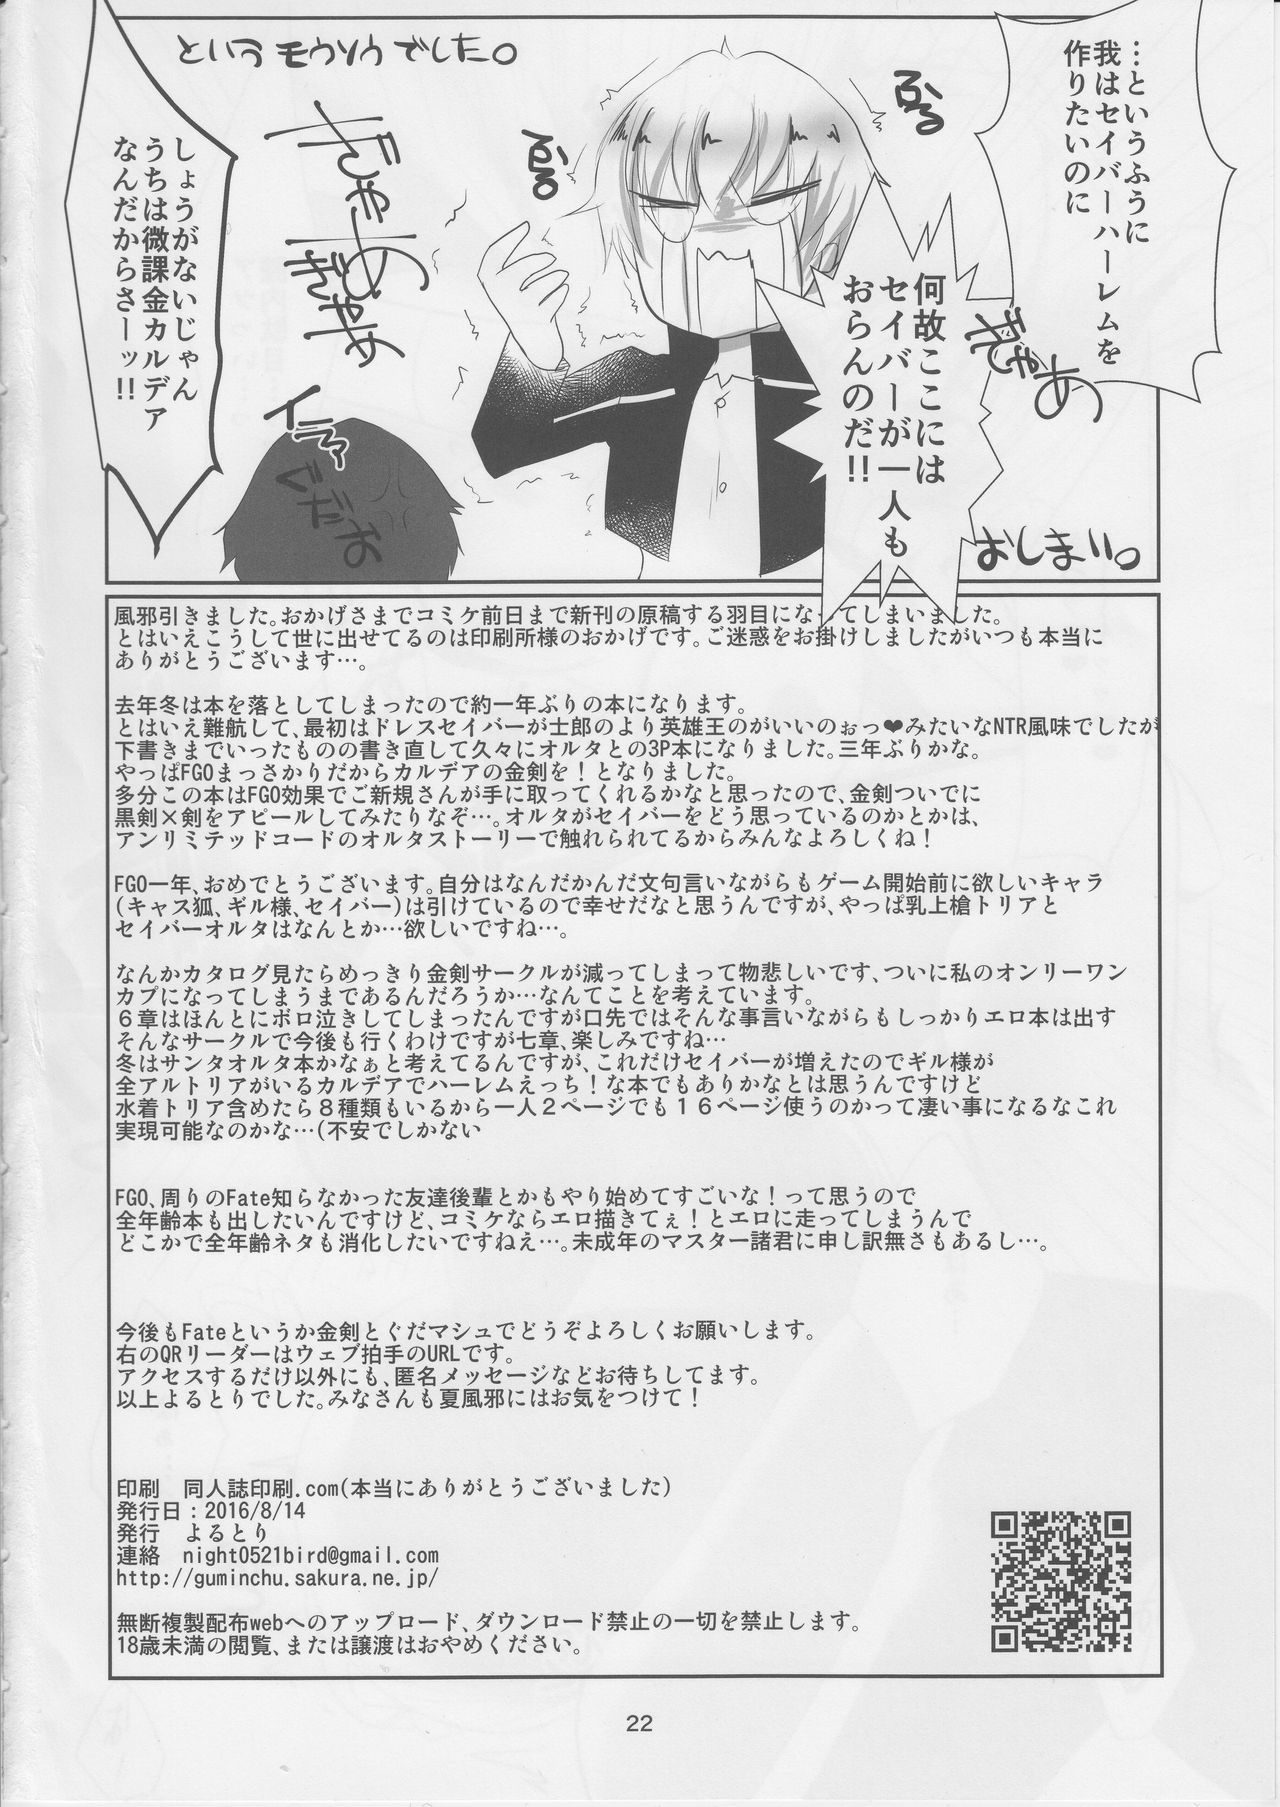 …というふうに
我はセイバーハーレムを
作りたいのに
何故ここには
セイバーが一人も
おらんのだ!!
ぎゃあ
ぷるぷる
というモウソウでした。
ぎゃあ
ぎゃめ
しょうがないじゃん
うちは微課金カルデア
なんだからさーッ!!
イラッ
ぐだお
おしまい。
風邪引きました。おかげさまでコミケ前日まで新刊の原稿する羽目になってしまいました。
とはいえこうして世に出せてるのは印刷所様のおかげです。ご迷惑をお掛けしましたがいつも本当に
ありがとうございます…。
去年冬は本を落としてしまったので約一年ぶりの本になります。
とはいえ難航して、最初はドレスセイバーが士郎のより英雄王のがいいのぉっ❤みたいなNTR風味でしたが
下書きまでいったものの書き直して久々にオルタとの3P本になりました。三年ぶりかな。
やっぱFGOまっさかりだからカルデアの金剣を！となりました。
多分この本はFGO効果でご新規さんが手に取ってくれるかなと思ったので、金剣ついでに
黒剣×剣をアピールしてみたりなぞ…。オルタがセイバーをどう思っているのかとかは、
アンリミテッドコードのオルタストーリーで触れられてるからみんなよろしくね！
FGO一年、おめでとうございます。自分はなんだかんだ文句言いながらもゲーム開始前に欲しいキャラ
(キャス狐、ギル様、セイバー)は引けているので幸せだなと思うんですが、やっぱ乳上槍トリアと
セイバーオルタはなんとか…欲しいですね…。
なんかカタログ見たらめっきり金剣サークルが減ってしまって物悲しいです、ついに私のオンリーワン
カプになってしまうまであるんだろうか…なんてことを考えています。
６章はほんとにボロ泣きしてしまったんですが口先ではそんな事言いながらもしっかりエロ本は出す
そんなサークルで今後も行くわけですが七章、楽しみですね…
冬はサンタオルタ本かなぁと考えてるんですが、これだけセイバーが増えたのでギル様が
全アルトリアがいるカルデアでハーレムえっち！な本でもありかなとは思うんですけど
水着トリア含めたら８種類もいるから一人２ページでも１６ページ使うのかって凄い事になるなこれ
実現可能なのかな…(不安でしかない
FGO、周りのFate知らなかった友達後輩とかもやり始めてすごいな！って思うので
全年齢本も出したいんですけど、コミケならエロ描きてぇ！とエロに走ってしまうんで
どこかで全年齢ネタも消化したいですねえ…。未成年のマスター諸君に申し訳無さもあるし…。
今後もFateというか金剣とぐだマシュでどうぞよろしくお願いします。
右のQRリーダーはウェブ拍手のURLです。
アクセスするだけ以外にも、匿名メッセージなどお待ちしてます。
以上よるとりでした。みなさんも夏風邪にはお気をつけて！
印刷　同人誌印刷.com(本当にありがとうございました)
発行日：2016/8/14
発行　よるとり
連絡　night0521bird@gmail.com
http://guminchu.sakura.ne.jp/
無断複製配布webへのアップロード、ダウンロード禁止の一切を禁止します。
18歳未満の閲覧、または譲渡はおやめください。
22